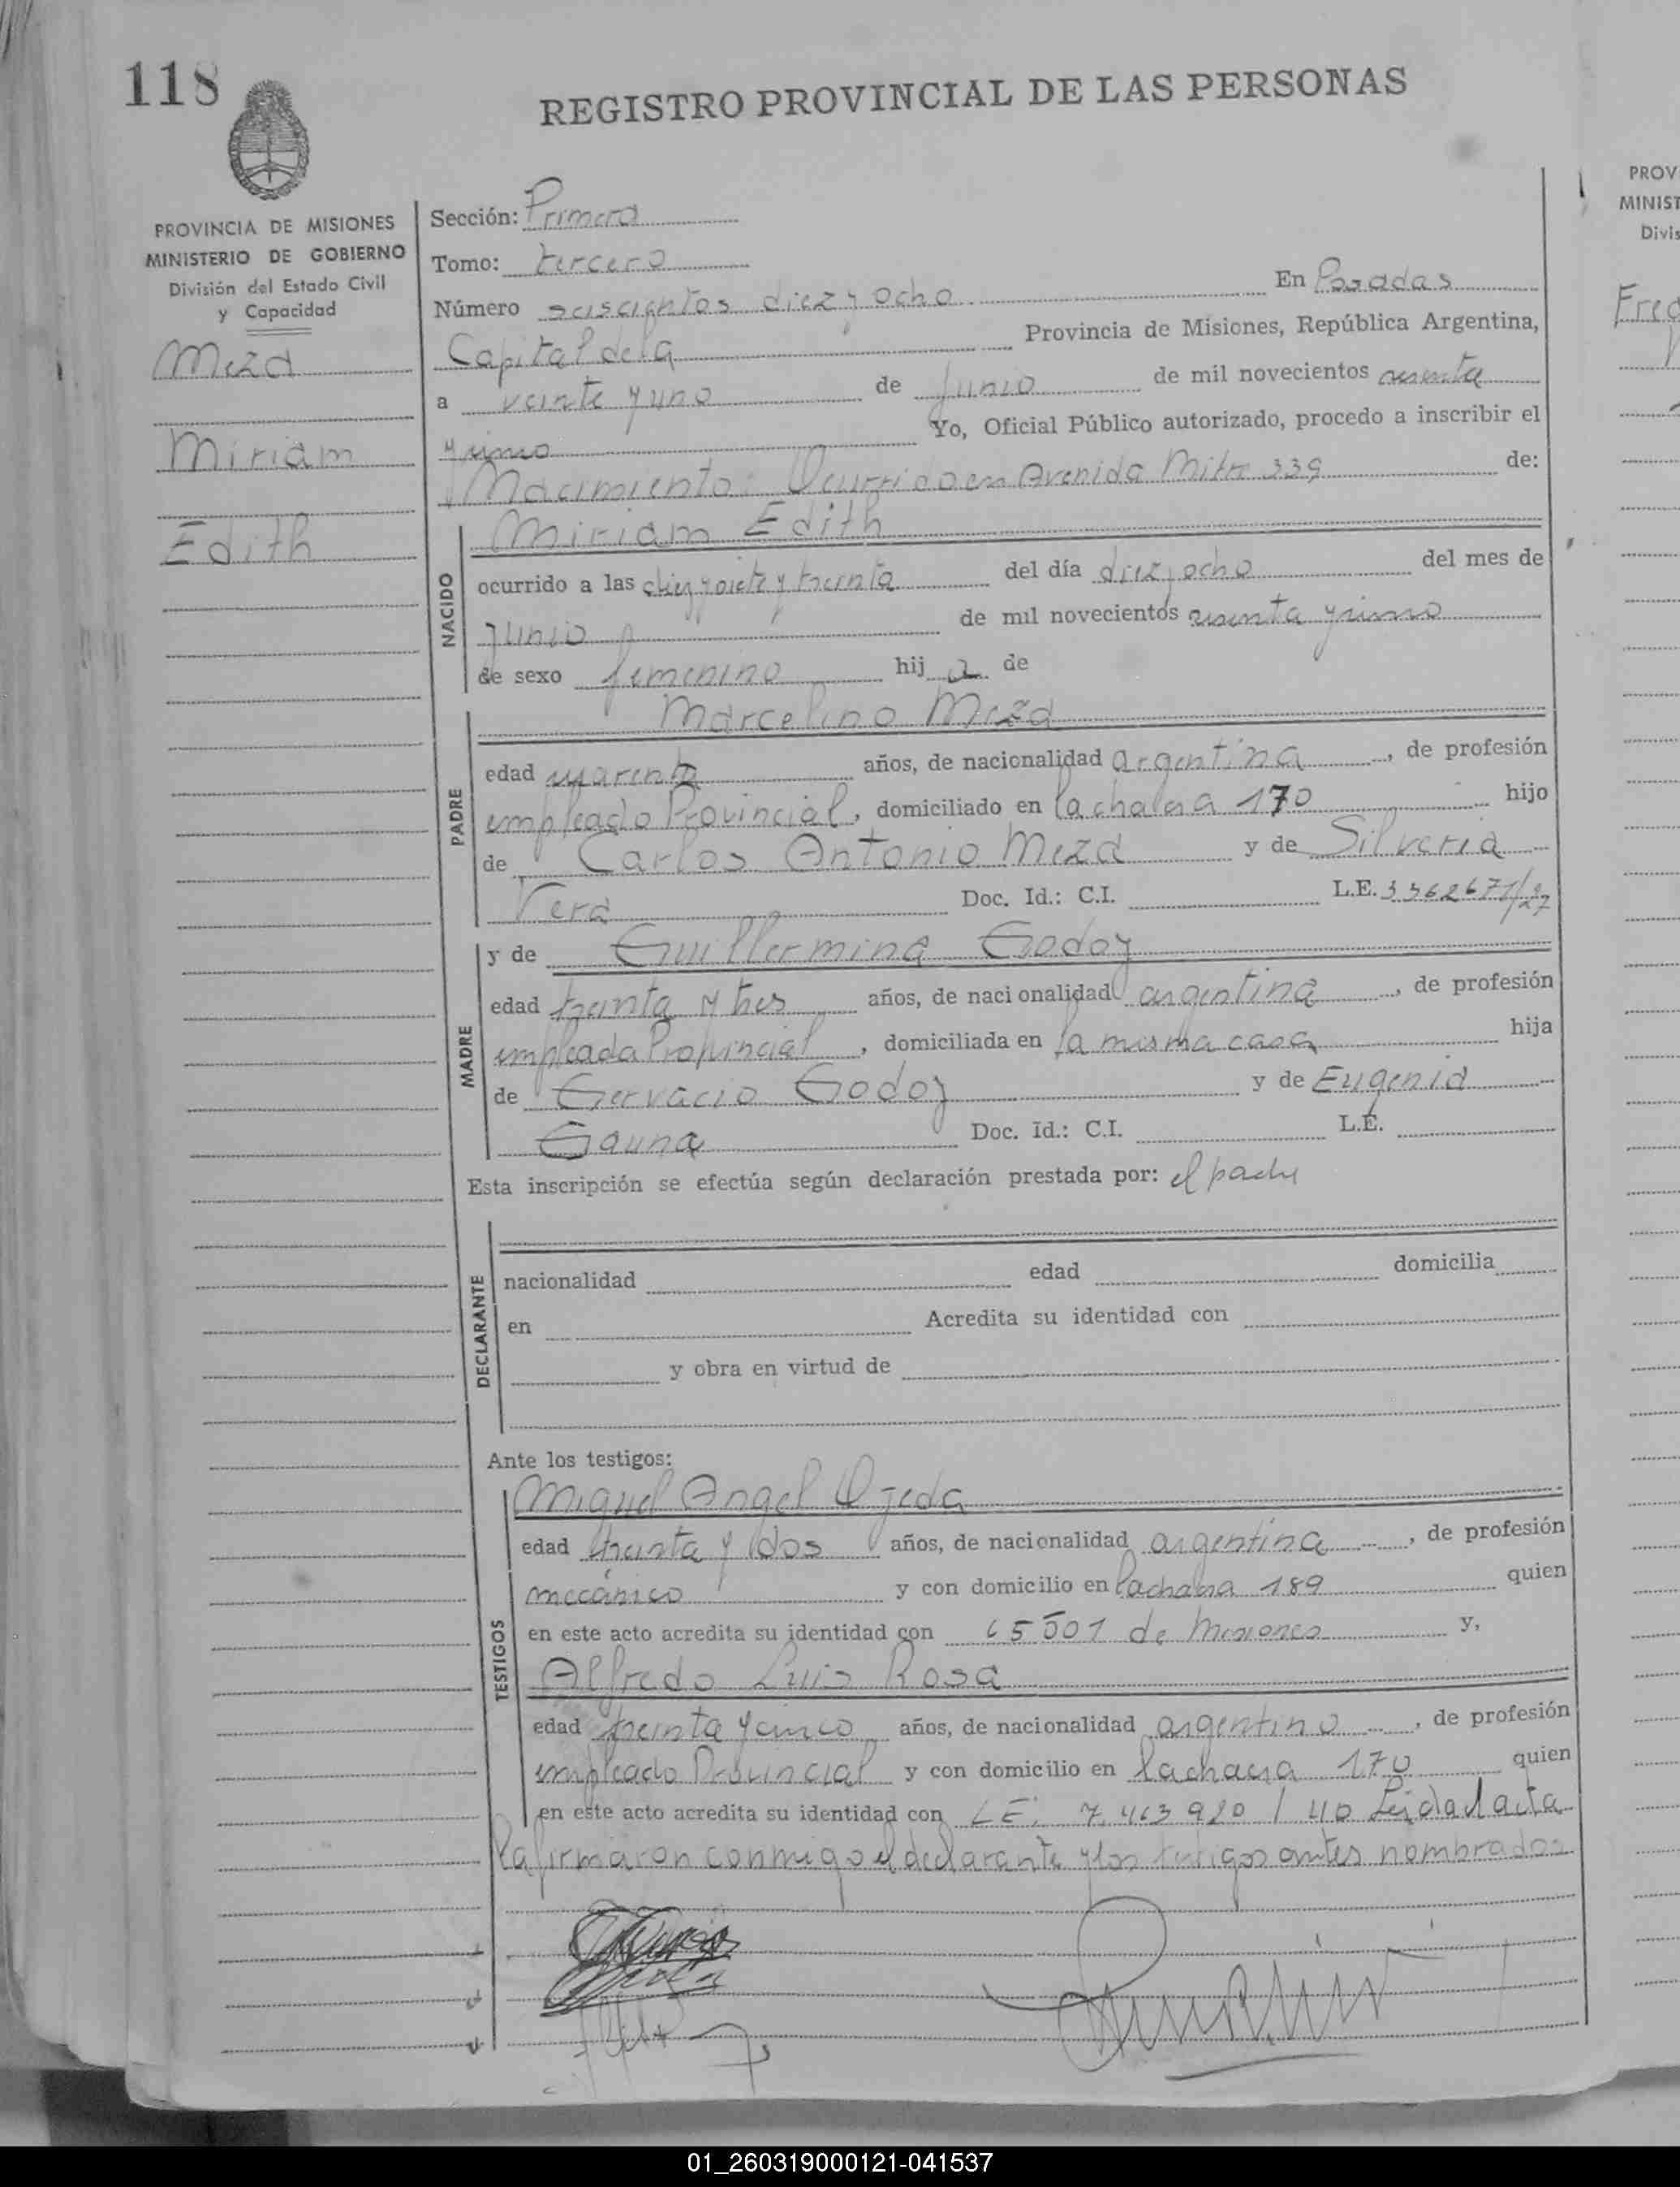 118
REGISTRO PROVINCIAL DE LAS PERSONAS
PROVINCIA DE MISIONES
MINISTERIO DE GOBIERNO
División del Estado Civil
y Capacidad
Meza
Miriam
Edith
Sección: Primera
Tomo: tercero
Número seiscientos diez y ocho En Posadas
Capital de la Provincia de Misiones, República Argentina,
a veinte y uno de Junio de mil novecientos
Yo, Oficial Público autorizado, procedo a inscribir el
Nacimiento: Ocurrido en Avenida Mitre 339 de:
NACIDO
Miriam Edith
ocurrido a las diez y siete y treinta del día diez y ocho del mes de
Junio de mil novecientos
de sexo femenino hij a de
PADRE
Marcelino Meza
edad cuarenta años, de nacionalidad argentina, de profesión
empleado Provincial, domiciliado en la chacra 170 hijo
de Carlos Antonio Meza y de Silveria
Vera Doc. Id.: C.I. L.E.
MADRE
y de Guillermina Godoy
edad treinta y tres años, de nacionalidad argentina, de profesión
empleada Provincial, domiciliada en la misma casa hija
de Gervacio Godoy y de Eugenia
Gauna Doc. Id.: C.I. L.E.
Esta inscripción se efectúa según declaración prestada por: el padre
DECLARANTE
nacionalidad edad domicilia
en Acredita su identidad con
y obra en virtud de
Ante los testigos:
TESTIGOS
Miguel Angel Ojeda
edad treinta y dos años, de nacionalidad argentina, de profesión
mecánico y con domicilio en 189 quien
en este acto acredita su identidad con de Misiones y,
Alfredo Luis Rosa
edad treinta y cinco años, de nacionalidad argentino, de profesión
empleado Provincial y con domicilio en la chacra 170 quien
en este acto acredita su identidad con L E. 7.463 920 / 40 Leida el acta
la firmaron conmigo el declarante y los testigos antes nombrados
PROV
MINIST
Divis
Fred
01_260319000121-041537